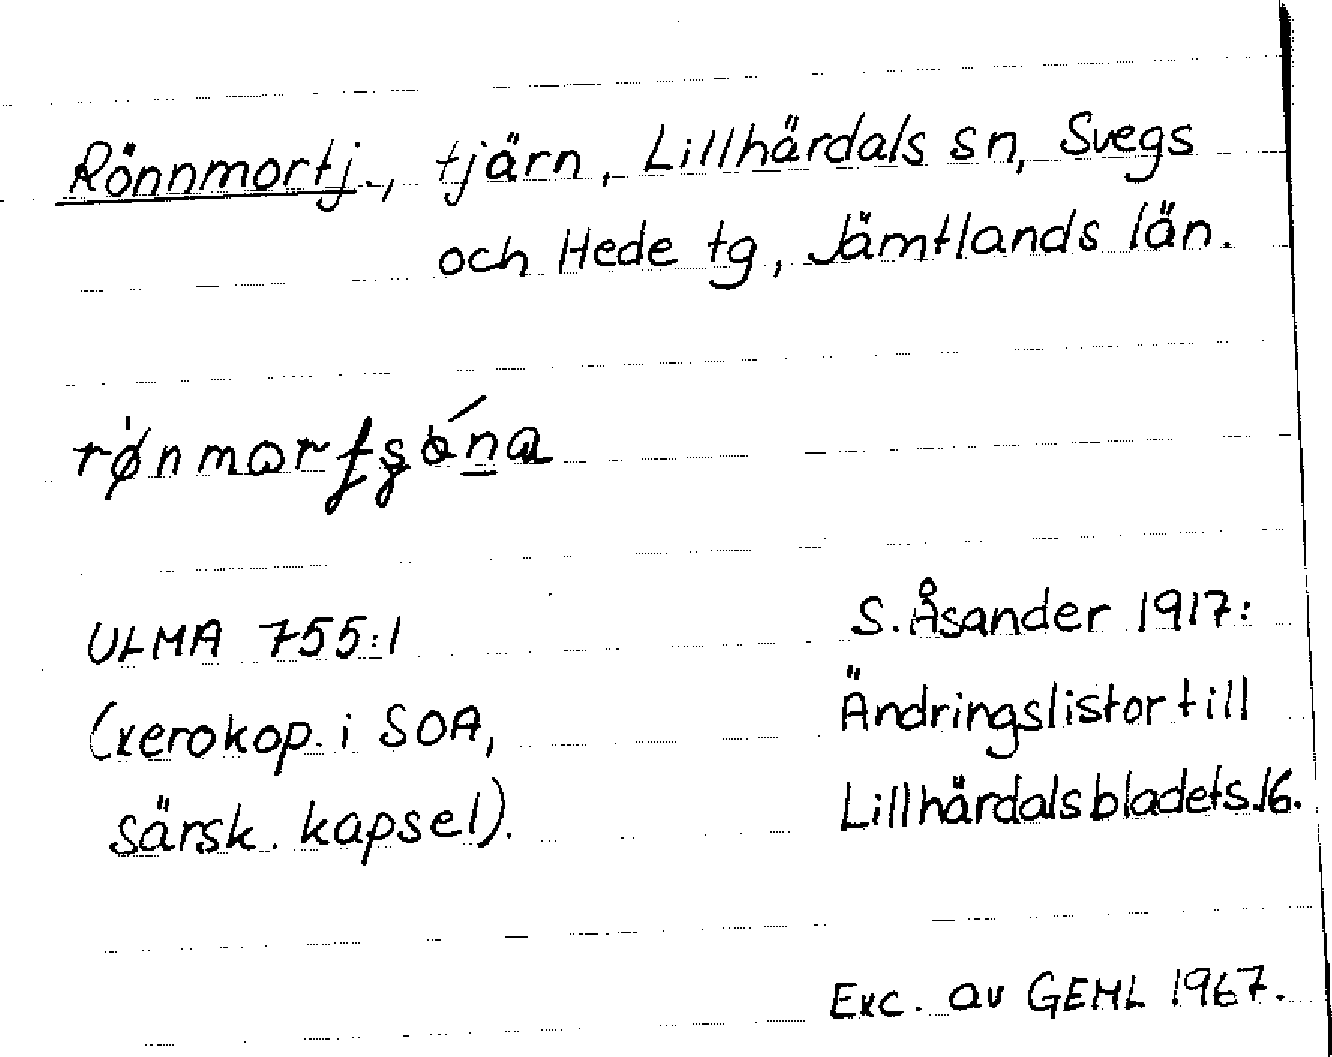 Rönnmortj., tjärn, Lillhärdals sn, Svegs
och Hede tg, Jämtlands län.
ULMA 755:1
(xerokop. i SOA,
särsk. kapsel).
S. Åsander 1917:
Ändringslistor till
Lillhärdalsbladet s.16.
Exc. av GEML 1967.